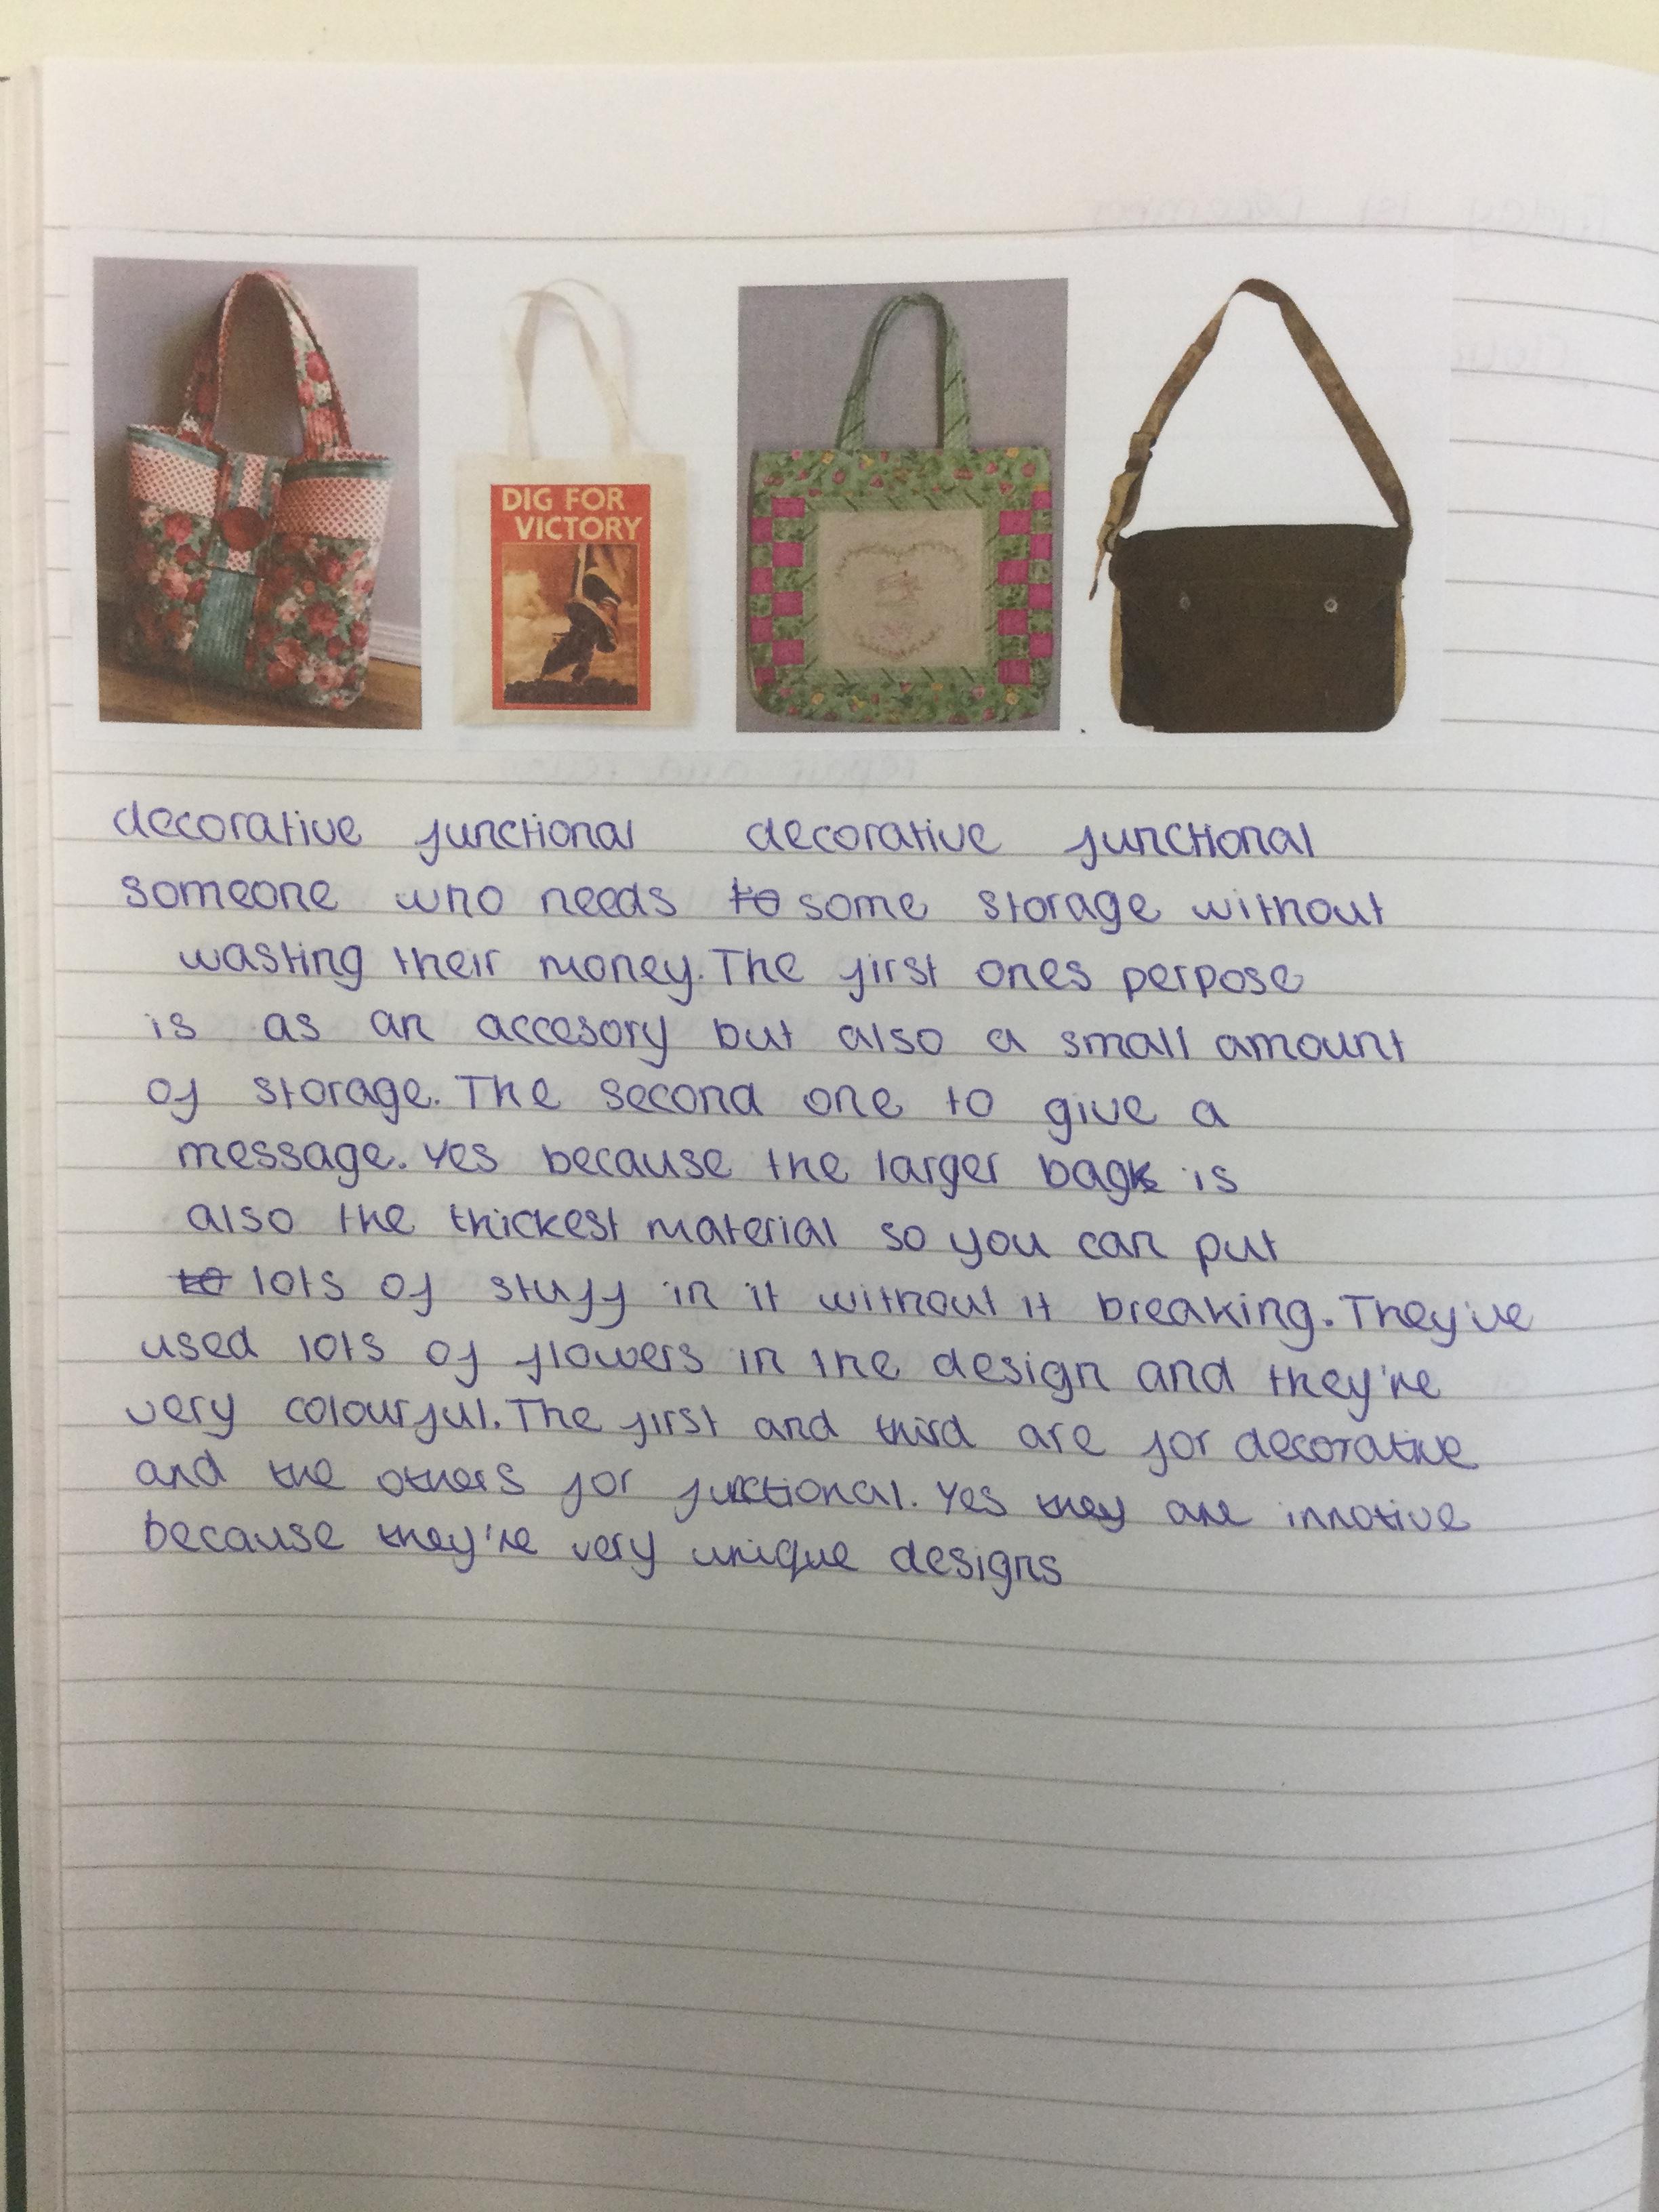 DIG FOR
VICTORY
decorative functional decorative functional
someone who needs to some storage without
wasting their money. The first ones perpose
is as an accesory but also a small amount
of storage. The second one to give a
message. Yes because the larger bag is
also the thickest material so you can put
to lots of stuff in it without it breaking. They've
used lots of flowers in the design and they're
very colourful. The first and third are for decorative
and the others for functional. Yes they are innotive
because they're very unique designs